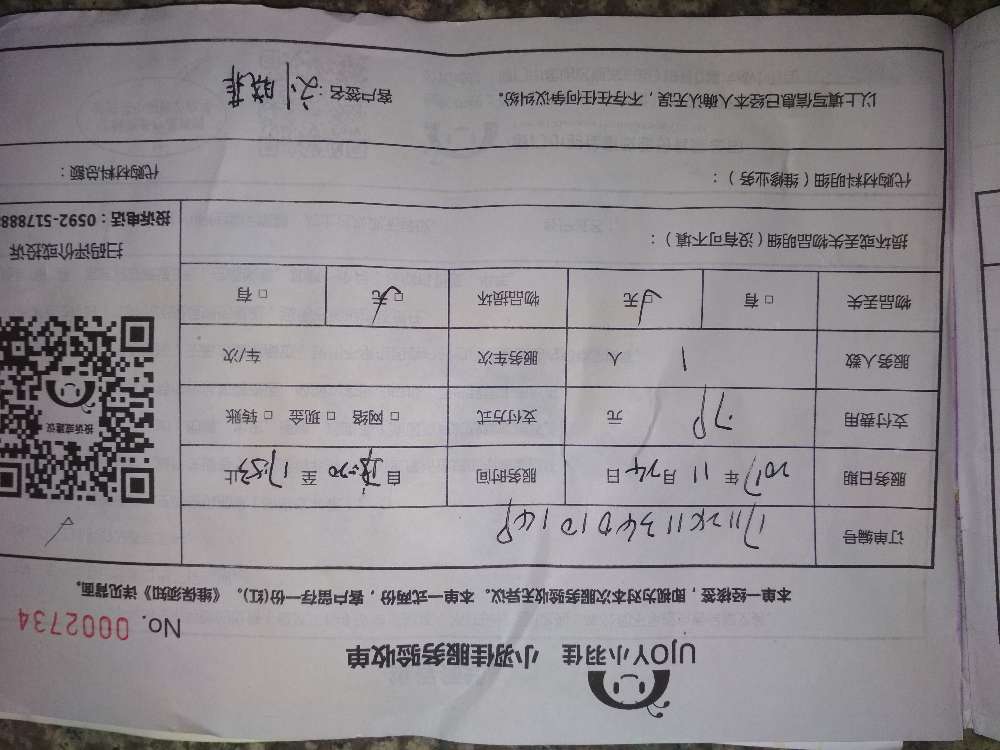 UJOY小羽佳 小羽佳服务验收单
No. 0002734
本单一经核签，即视为对本次服务验收无异议。本单一式两份，客户留存一份(红)。《维保须知》详见背面。
订单编号
服务日期 2017 年 11 月 24 日 服务时间 自 至 17:53 止
支付费用 元 支付方式 □ 网络 □ 现金 □ 转账
服务人数 1 人 服务车次 车次
物品丢失 □ 有 □ 无 物品损坏 □ 无 □ 有
损坏或丢失物品明细（没有可不填）：
代购材料明细（维修业务）： 代购材料总额：
以上填写信息已经本人确认无误，不存在任何争议纠纷。 客户签名：刘晓菲
投诉或建议
扫码评价或投诉
投诉电话：0592-517888